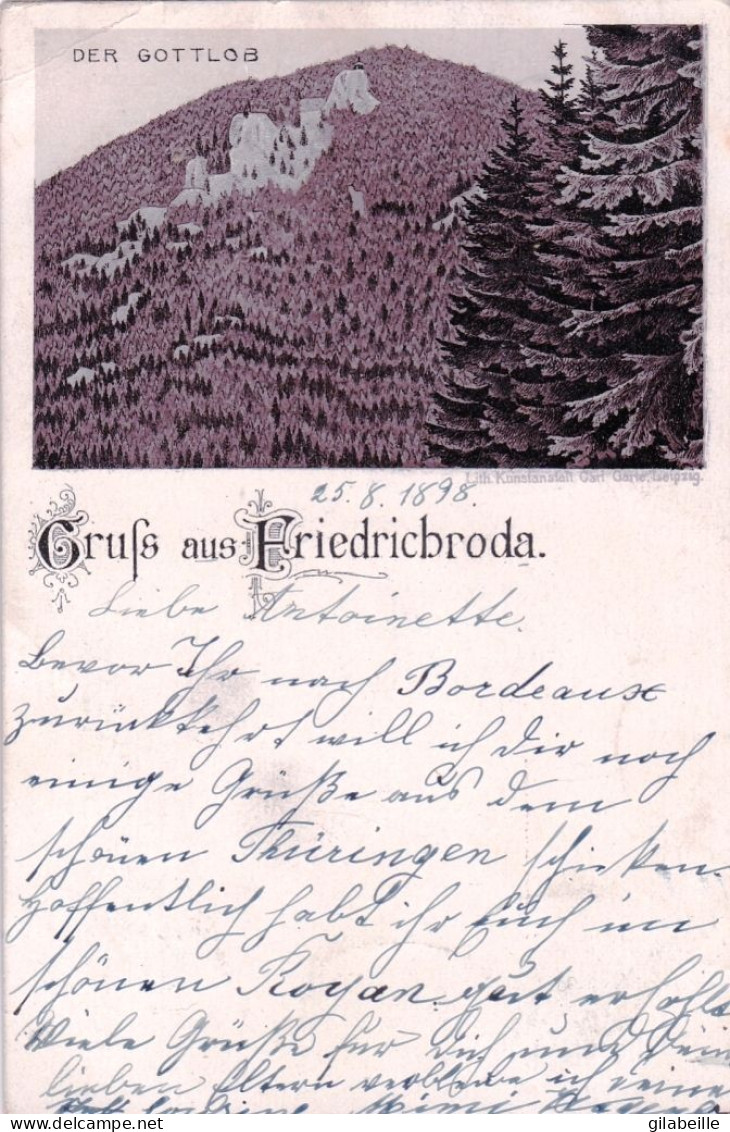 DER GOTTLOB
Lith. Kunstanstalt Carl Garte, Leipzig.
25. 8. 1898.
Gruſs aus Friedrichroda.
Liebe Antoinette.
Bevor Ihr nach Bordeaux
zurückkehrt will ich dir noch
einige Grüße aus dem
schönen Thüringen schicken.
Hoffentlich habt ihr Euch im
schönen Royan gut erholt
Viele Grüße für dich und Dein
lieben Eltern verbleibe ich deine
Mimi
gilabeille